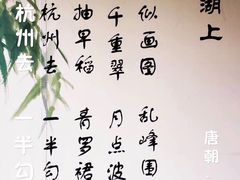 湖上
唐朝·
似画图 乱峰围
千重翠 月点波
抽早稻 青罗裙
杭州去 一半勾
杭州去 一半勾